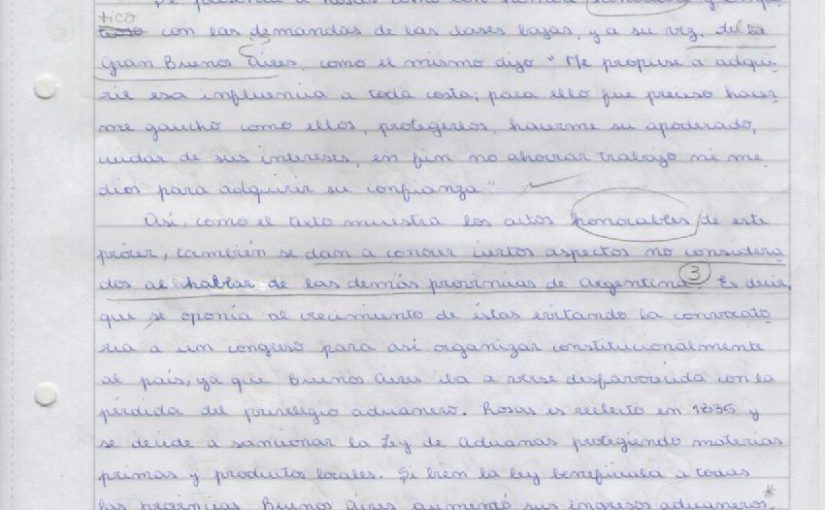 Se presenta a Rosas como un hombre honorable y empá
tico con las demandas de las clases bajas, y a su vez, del
Gran Buenos Aires, como el mismo dijo "Me propuse a adqui
rir esa influencia a toda costa; para ello fue preciso hacer
me gaucho como ellos, protegerlos, hacerme su apoderado,
cuidar de sus intereses, en fin no ahorrar trabajo ni me
dios para adquirir su confianza"
Así, como el texto muestra los actos honorables de este
prócer, también se dan a conocer ciertos aspectos no considera
dos al hablar de las demás provincias de Argentina. 3 Es decir,
que se oponía al crecimiento de éstas evitando la convocato
ria a un congreso para así organizar constitucionalmente
al país, ya que Buenos Aires iba a verse desfavorecida con la
pérdida del privilegio aduanero. Rosas es reelecto en 1835 y
se decide a sancionar la Ley de Aduanas protegiendo materias
primas y productos locales. Si bien la ley beneficiaba a todas
las provincias, Buenos Aires aumentó sus ingresos aduaneros. *